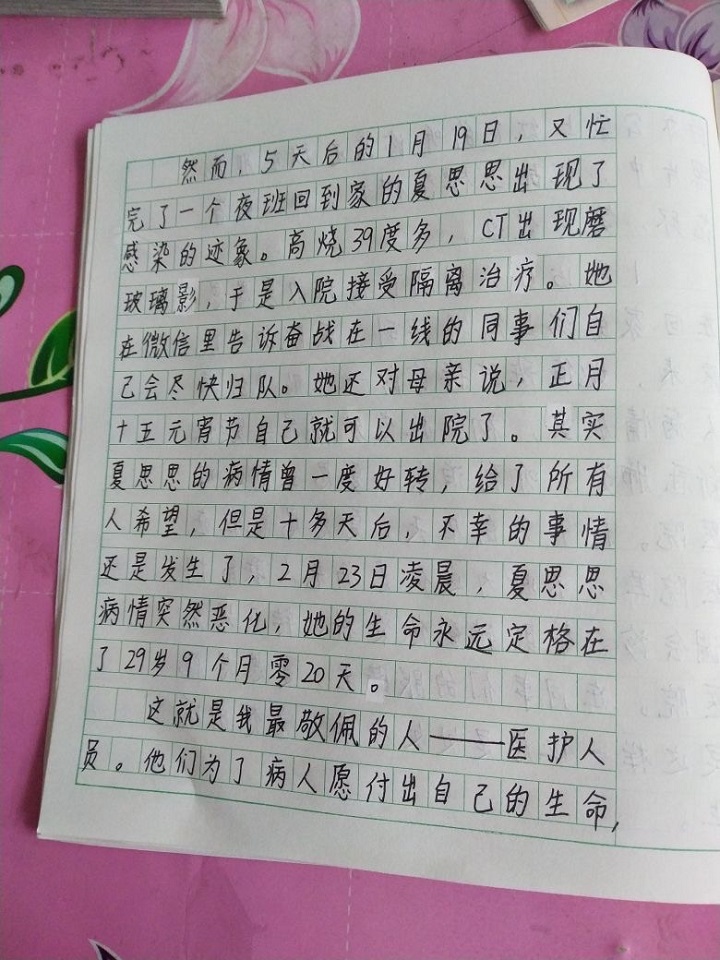 然而，5天后的1月19日，又忙
完了一个夜班回到家的夏思思出现了
感染的迹象。高烧39度多，CT出现磨
玻璃影，于是入院接受隔离治疗。她
在微信里告诉奋战在一线的同事们自
己会尽快归队。她还对母亲说，正月
十五元宵节自己就可以出院了。其实
夏思思的病情曾一度好转，给了所有
人希望，但是十多天后，不幸的事情
还是发生了，2月23日凌晨，夏思思
病情突然恶化，她的生命永远定格在
了29岁9个月零20天。
这就是我最敬佩的人——医护人
员。他们为了病人愿付出自己的生命，